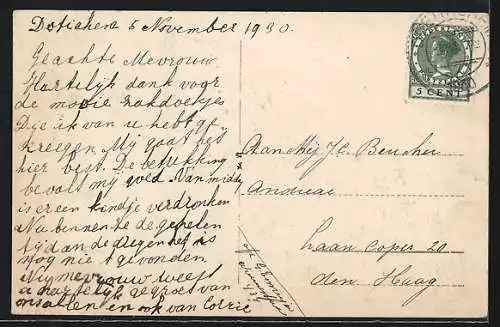 Dotichem 5 November 1930.
Geachte Mevrouw
Hartelijk dank voor
de mooie zakdoekjes
Die ik van u hebt ge
kreegen. My gaat het
hier best. De betrekking
bevalt mij goed. Van midde
is er een kindje verdronken
Na binnen te de geheelen
tijd an de dregen het is
nog niet gevonden.
Nu mevrouw weest
u hartelijk gegroet van
ons allen en ook van Corrie
NEDERLAND
5 CENT
Aan Mej J.C. Beucher
Laan Copes 20
den Haag